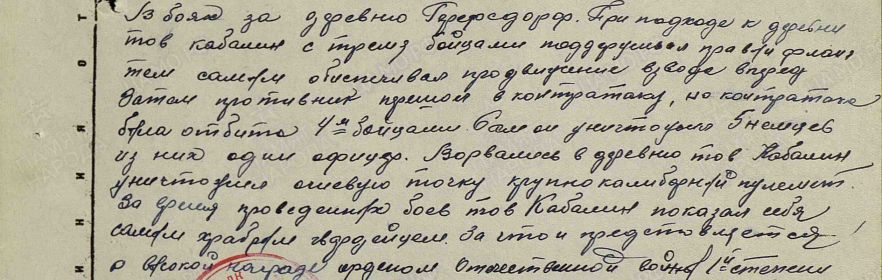 В боях за деревню Герерсдорф. При подходе к деревни
тов Кабалин с тремя бойцами поддерживал правый фланг
тем самым обеспечивал продвижение взвода вперед
Затем противник пришол в контратаку, но контратака
была отбита 4мя бойцами. Сам он уничтожил 5 немцев
из них один офицер. Ворвались в деревню тов Кабалин
уничтожил огневую точку крупнокалиберный пулемет.
За время проведенных боев тов Кабалин показал себя
самым храбрым гвардейцем. За что и представляется
к высокой награде орденом Отечественной войны степени